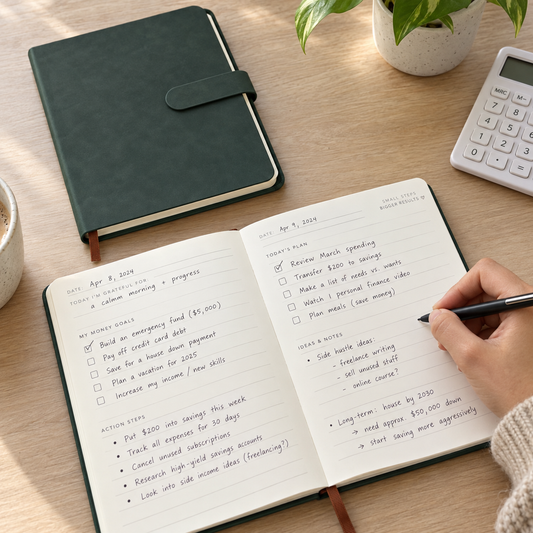 DATE Apr 8, 2024
TODAY I'M GRATEFUL FOR
a calmm morning + progress
MY MONEY GOALS
Build an emergency fund ($5,000)
Pay off credit card debt
Save for a house down payment
Plan a vacation for 2025
Increase my income / new skills
ACTION STEPS
• Put $200 into savings this week
• Track all expenses for 30 days
• Cancel unused subscriptions
• Research high-yield savings accounts
• Look into side income ideas (freelancing?)
DATE Apr 9, 2024
SMALL STEPS
BIGGER RESULTS ♡
TODAY'S PLAN
Review March spending
Transfer $200 to savings
Make a list of needs vs. wants
Watch 1 personal finance video
Plan meals (save money)
IDEAS & NOTES
• Side hustle ideas:
- freelance writing
- sell unused stuff
- online course?
• Long-term: house by 2030
→ need approx $50,000 down
→ start saving more aggressively
MRC M-
7 8
4 5 6
1 2 3
0 . =